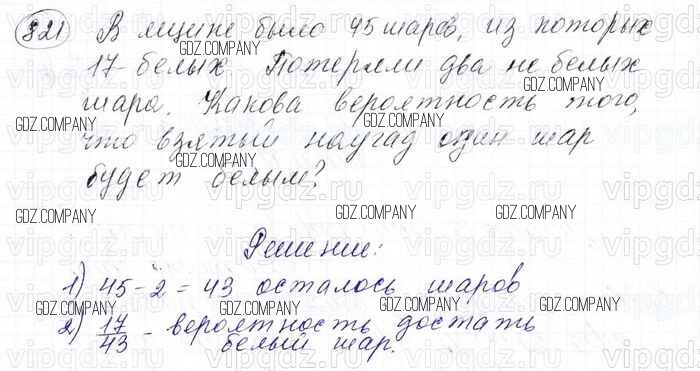 821 В ящике было 45 шаров, из которых
17 белых Потеряли два не белых
шара. Какова вероятность того,
что взятый наугад один шар
будет белым?
Решение:
1) 45-2=43 осталось шаров
2) 17/43 - вероятность достать
белый шар.
GDZ.COMPANY
GDZ.COMPANY
GDZ.COMPANY
GDZ.COMPANY
GDZ.COMPANY
GDZ.COMPANY
GDZ.COMPANY
GDZ.COMPANY
GDZ.COMPANY
GDZ.COMPANY
GDZ.COMPANY
GDZ.COMPANY
vipgdz.ru